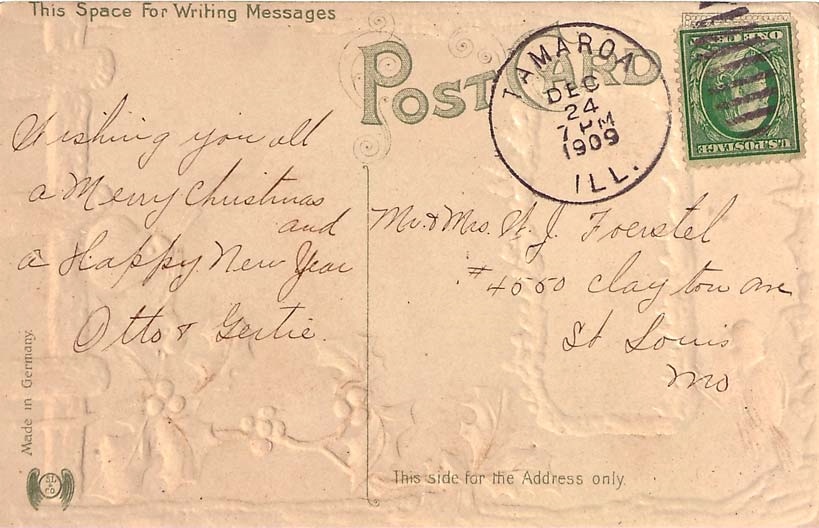 This Space For Writing Messages
POST CARD
TAMAROA
DEC
24
7 PM
1909
ILL.
ONE CENT
U.S. POSTAGE
Wishing you all
a Merry Christmas
and
a Happy New Year
Otto & Gertie.
Mr. & Mrs. W. J. Foerstel
#4550 Clayton Ave
St Louis
Mo
Made in Germany.
This side for the Address only.